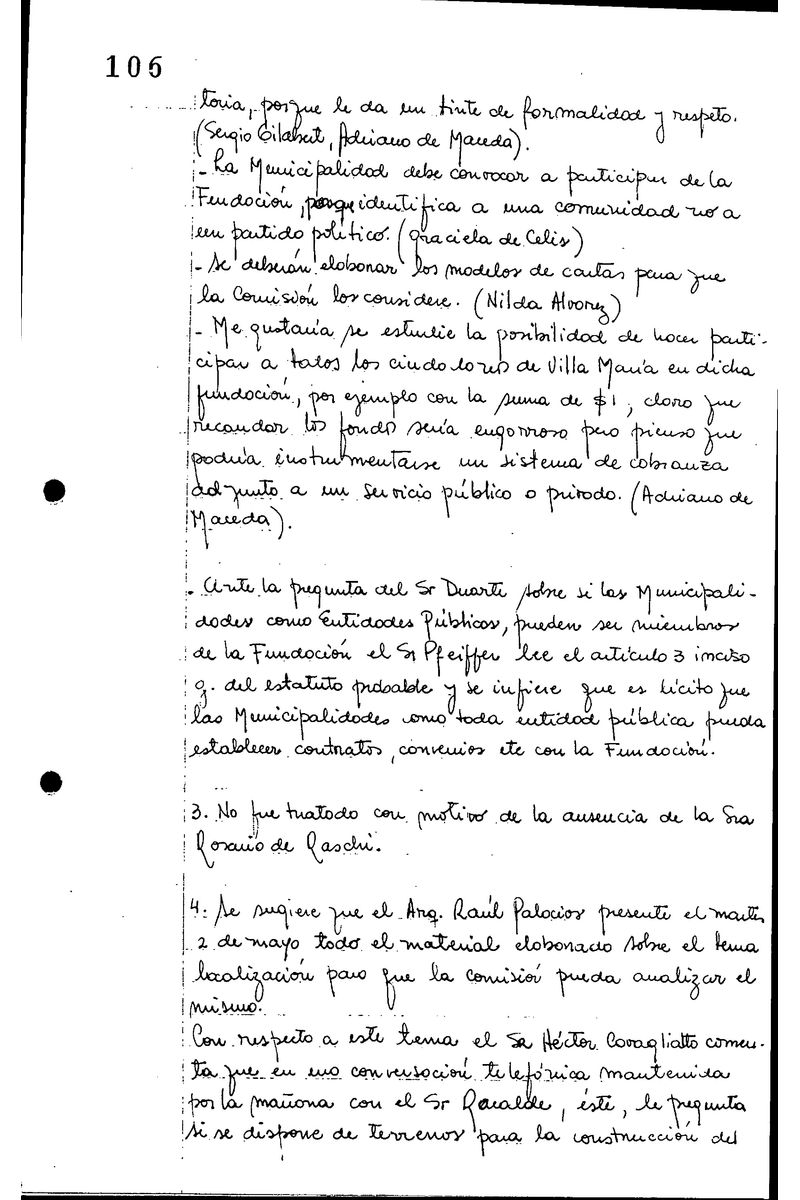 106
toria, porque le da un tinte de formalidad y respeto.
(Sergio Gilabert, Adriano de Maceda).
- La Municipalidad debe convocar a participar de la
Fundación, porque identifica a una comunidad no a
un partido político. (Graciela de Celis)
- Se deberán elaborar los modelos de cartas para que
la Comisión los considere. (Nilda Alvarez)
- Me gustaría se estudie la posibilidad de hacer parti-
cipar a todos los ciudadanos de Villa María en dicha
fundación, por ejemplo con la suma de $1, claro que
recaudar los fondos sería engorroso pero pienso que
podría instrumentarse un sistema de cobranza
adjunto a un servicio público o privado. (Adriano de
Maceda).
. Ante la pregunta del Sr Duarte sobre si las Municipali-
dades como Entidades Públicas, pueden ser miembros
de la Fundación el Sr Pfeiffer lee el artículo 3 inciso
g. del estatuto probable y se infiere que es lícito que
las Municipalidades como toda entidad pública pueda
establecer contratos, convenios etc con la Fundación.
3. No fue tratado con motivo de la ausencia de la Sra
Rosario de
4. Se sugiere que el Arq. Raúl Palacios presente el martes
2 de mayo todo el material elaborado sobre el tema
localización para que la comisión pueda analizar el
mismo.
Con respecto a este tema el Sr Héctor Cavagliatto comen-
ta que en una conversación telefónica mantenida
por la mañana con el Sr Recalde, éste, le pregunta
si se dispone de terrenos para la construcción del